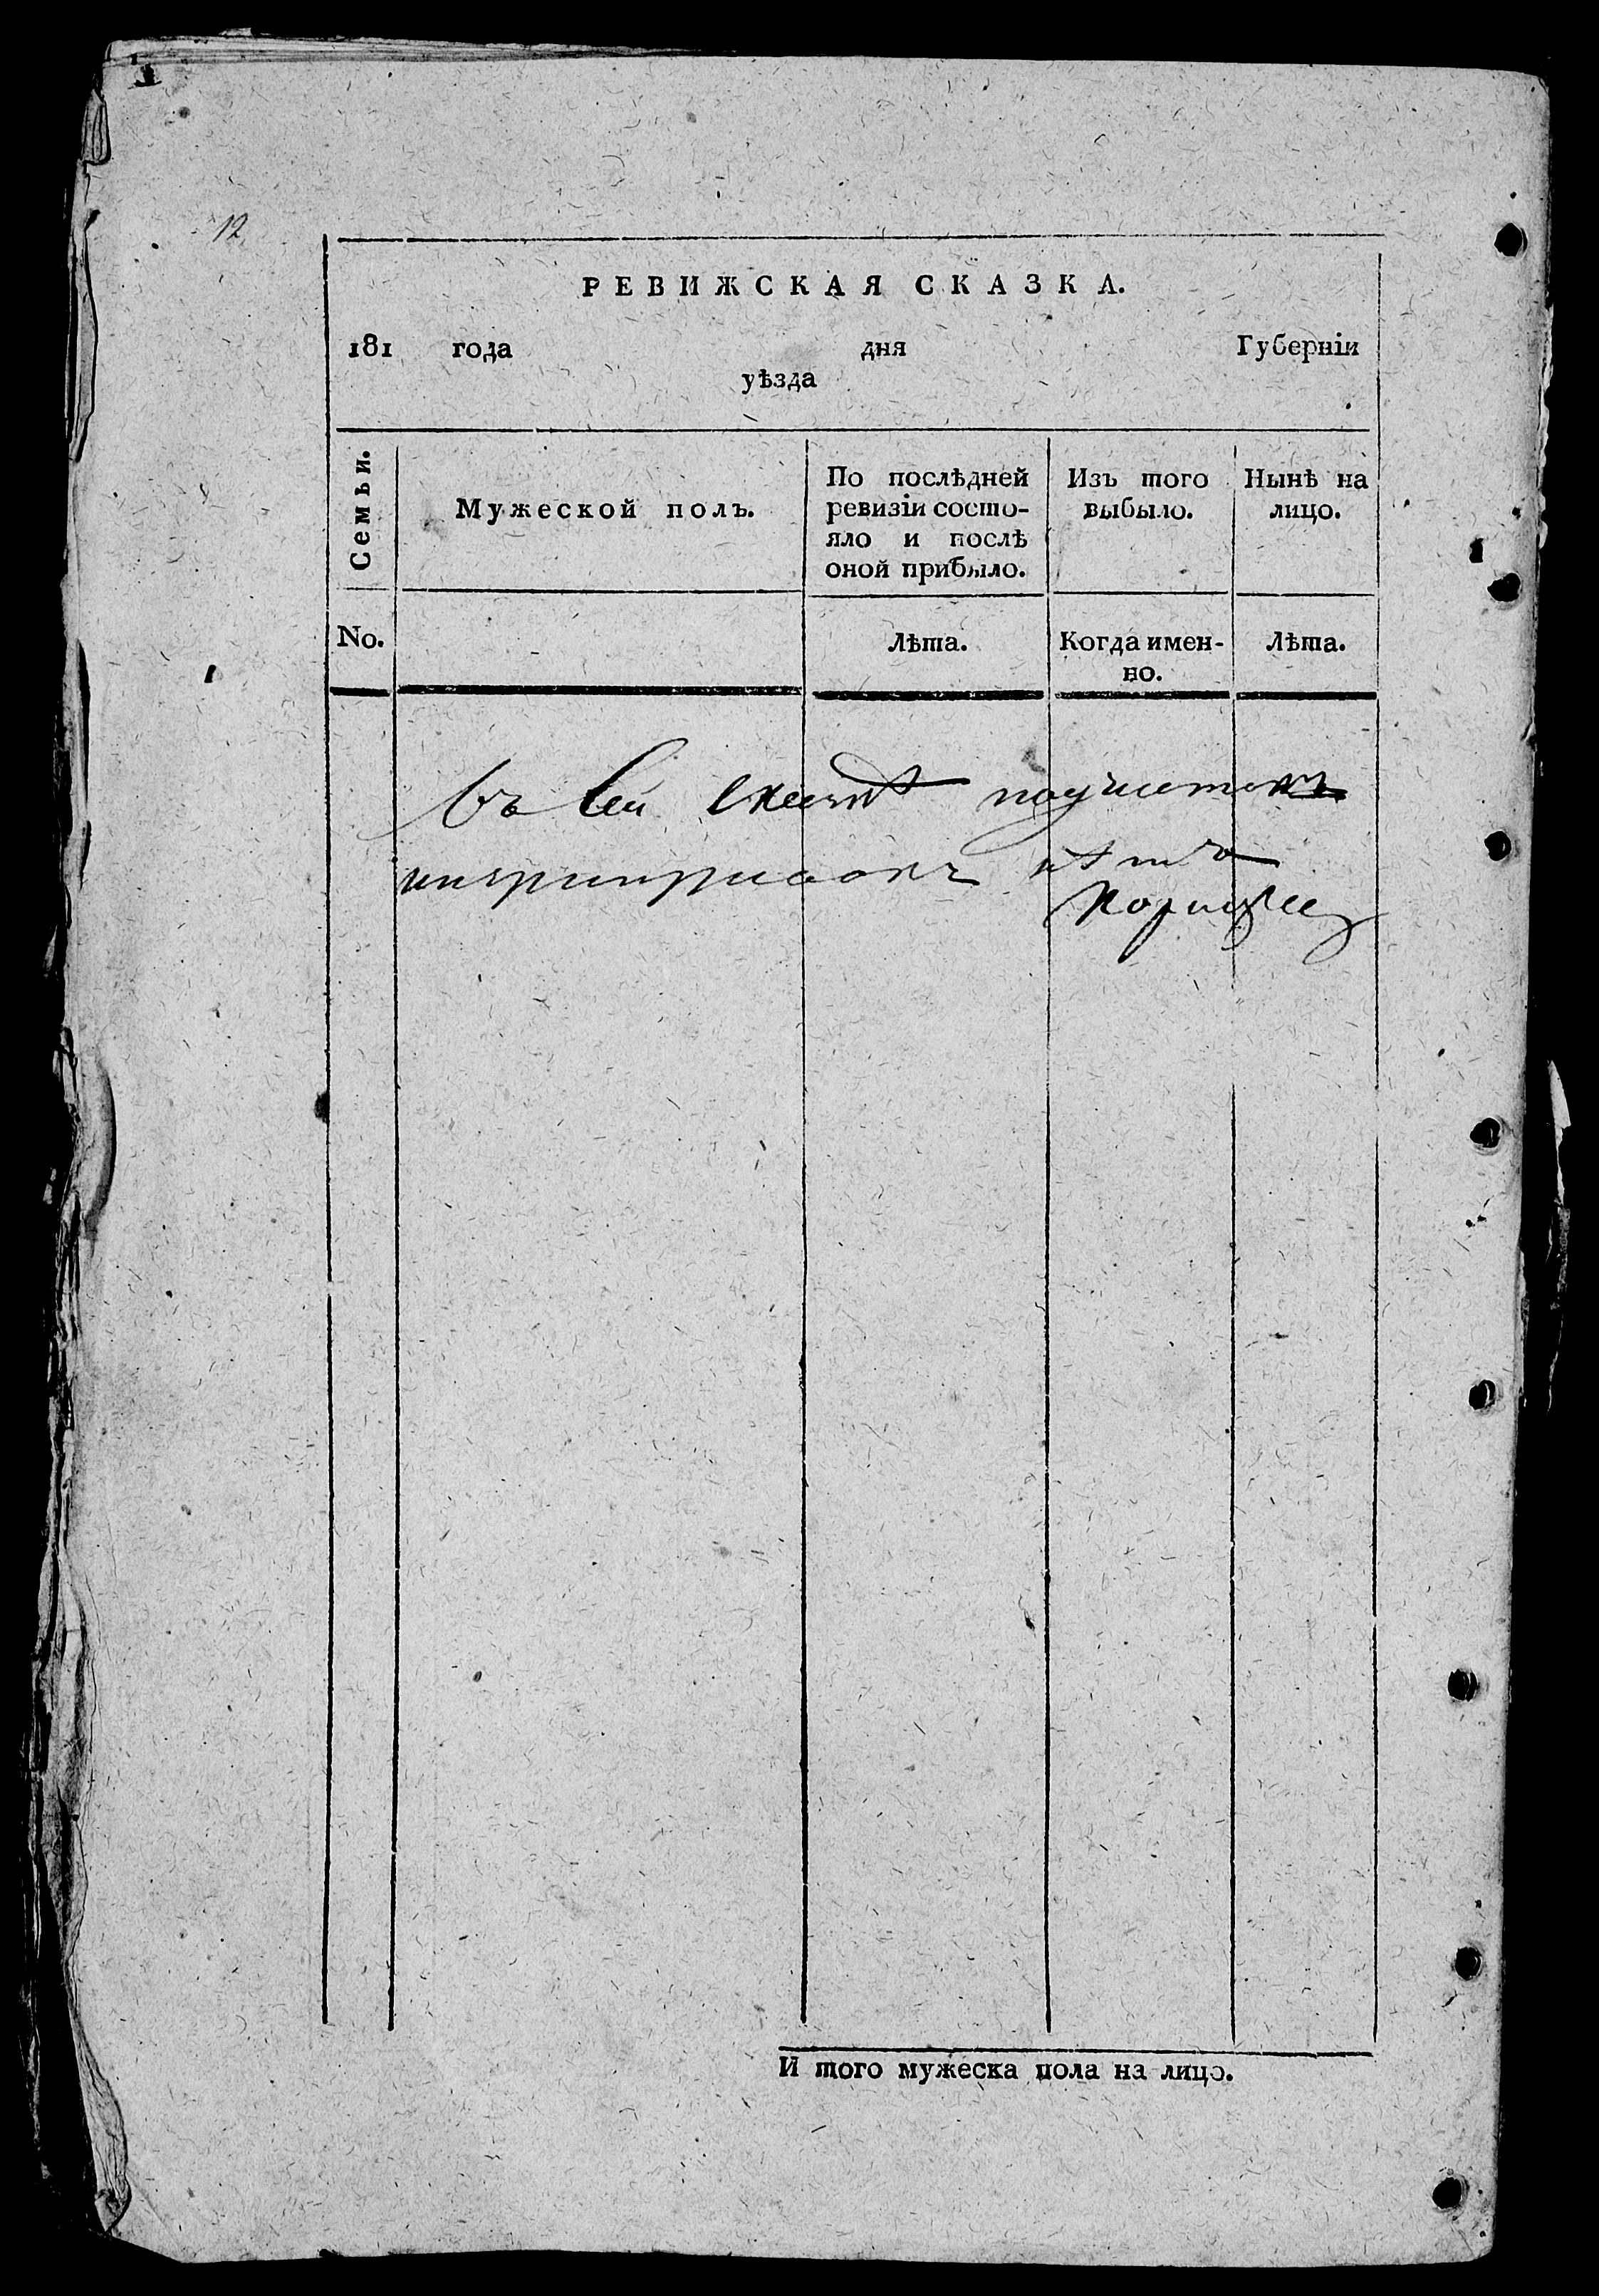 12
РЕВИЖСКАЯ СКАЗКА.
181 года дня Губерніи
уѣзда
Семьи.
Мужеской полъ.
По послѣдней
ревизіи состо-
яло и послѣ
оной прибыло.
Изъ того
выбыло.
Нынѣ на
лицо.
No.
Лѣта.
Когда имен-
но.
Лѣта.
Въ сей скаскѣ почистокъ
ни приписокъ нѣтъ
И того мужеска пола на лицо.